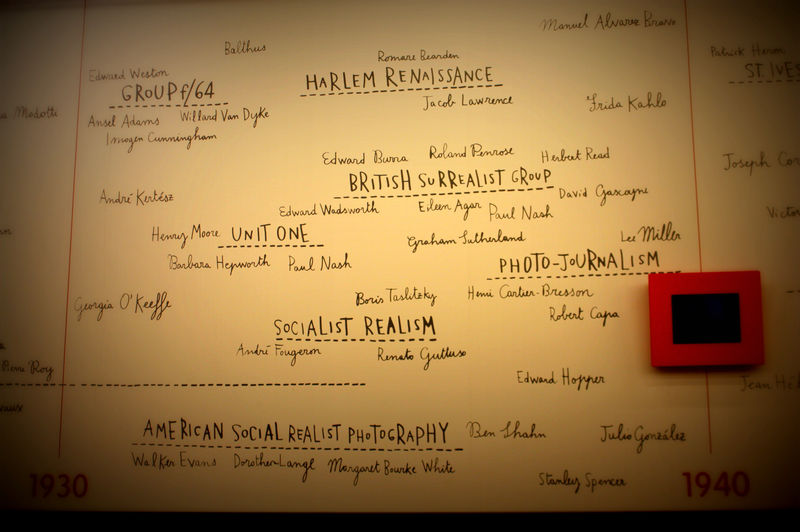 Manuel Alvarez Bravo
Balthus
Romare Bearden
Patrick Heron
Edward Weston
HARLEM RENAISSANCE
ST. IVES
GROUP f/64
Jacob Lawrence
Frida Kahlo
Modotti
Ansel Adams
Willard Van Dyke
Imogen Cunningham
Edward Burra
Roland Penrose
Herbert Read
Joseph
BRITISH SURREALIST GROUP
André Kertész
David Gascoyne
Edward Wadsworth
Eileen Agar
Paul Nash
Henry Moore
UNIT ONE
Graham Sutherland
Lee Miller
Barbara Hepworth
Paul Nash
PHOTO-JOURNALISM
Georgia O'Keeffe
Boris Taslitzky
Henri Cartier-Bresson
Robert Capa
SOCIALIST REALISM
André Fougeron
Renato Guttuso
Pierre Roy
Edward Hopper
Jean
AMERICAN SOCIAL REALIST PHOTOGRAPHY
Ben Shahn
Julio González
Walker Evans
Dorothea Lange
Margaret Bourke White
Stanley Spencer
1930
1940